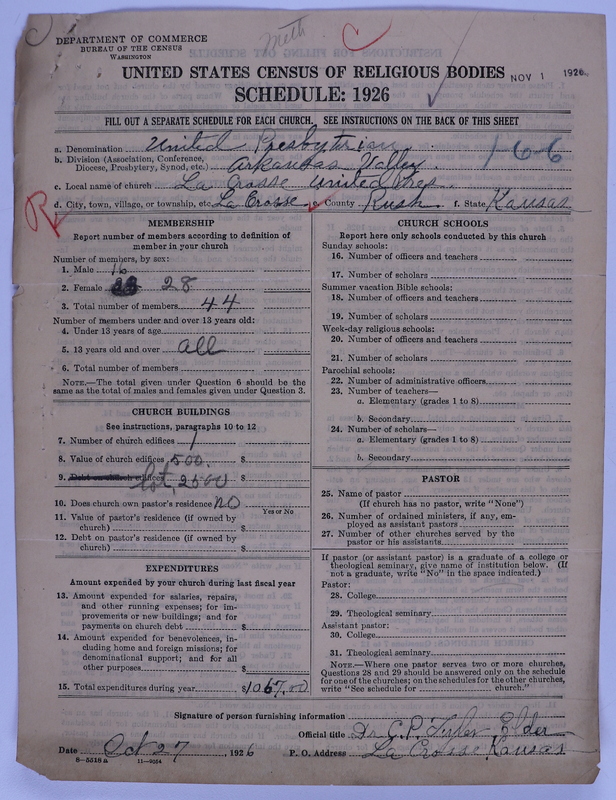 DEPARTMENT OF COMMERCE
BUREAU OF THE CENSUS
WASHINGTON
Meth.
UNITED STATES CENSUS OF RELIGIOUS BODIES
NOV 1 1926
SCHEDULE: 1926
FILL OUT A SEPARATE SCHEDULE FOR EACH CHURCH. SEE INSTRUCTIONS ON THE BACK OF THIS SHEET
a. Denomination United Presbytrian
b. Division (Association, Conference, Diocese, Presbytery, Synod, etc.) Arkansas Valley
166
c. Local name of church La Crosse United Pres
R
d. City, town, village, or township, etc. La Crosse e. County Rush f. State Kansas
MEMBERSHIP
Report number of members according to definition of
member in your church
Number of members, by sex:
1. Male 16
2. Female 28
3. Total number of members 44
Number of members under and over 13 years old:
4. Under 13 years of age
5. 13 years old and over all
6. Total number of members
NOTE.—The total given under Question 6 should be the
same as the total of males and females given under Question 3.
CHURCH BUILDINGS
See instructions, paragraphs 10 to 12
7. Number of church edifices 1
8. Value of church edifices 500. $
9. Debt on church edifices lot, 2500 $
10. Does church own pastor's residence no
Yes or No
11. Value of pastor's residence (if owned by
church) $
12. Debt on pastor's residence (if owned by
church) $
EXPENDITURES
Amount expended by your church during last fiscal year
13. Amount expended for salaries, repairs,
and other running expenses; for im-
provements or new buildings; and for
payments on church debt $
14. Amount expended for benevolences, in-
cluding home and foreign missions; for
denominational support; and for all
other purposes $
15. Total expenditures during year $1067.00
CHURCH SCHOOLS
Report here only schools conducted by this church
Sunday schools:
16. Number of officers and teachers
17. Number of scholars
Summer vacation Bible schools:
18. Number of officers and teachers
19. Number of scholars
Week-day religious schools:
20. Number of officers and teachers
21. Number of scholars
Parochial schools:
22. Number of administrative officers
23. Number of teachers—
a. Elementary (grades 1 to 8)
b. Secondary
24. Number of scholars—
a. Elementary (grades 1 to 8)
b. Secondary
PASTOR
25. Name of pastor
(If church has no pastor, write "None")
26. Number of ordained ministers, if any, em-
ployed as assistant pastors
27. Number of other churches served by the
pastor or his assistants
If pastor (or assistant pastor) is a graduate of a college or
theological seminary, give name of institution below. (If
not a graduate, write "No" in the space indicated.)
Pastor:
28. College
29. Theological seminary
Assistant pastor:
30. College
31. Theological seminary
NOTE.—Where one pastor serves two or more churches,
Questions 28 and 29 should be answered only on the schedule
for one of the churches; on the schedules for the other churches,
write "See schedule for church."
Signature of person furnishing information
Official title Dr. Elder
Date Oct 27, 1926 P. O. Address La Crosse Kansas
8—5518a 11—9064